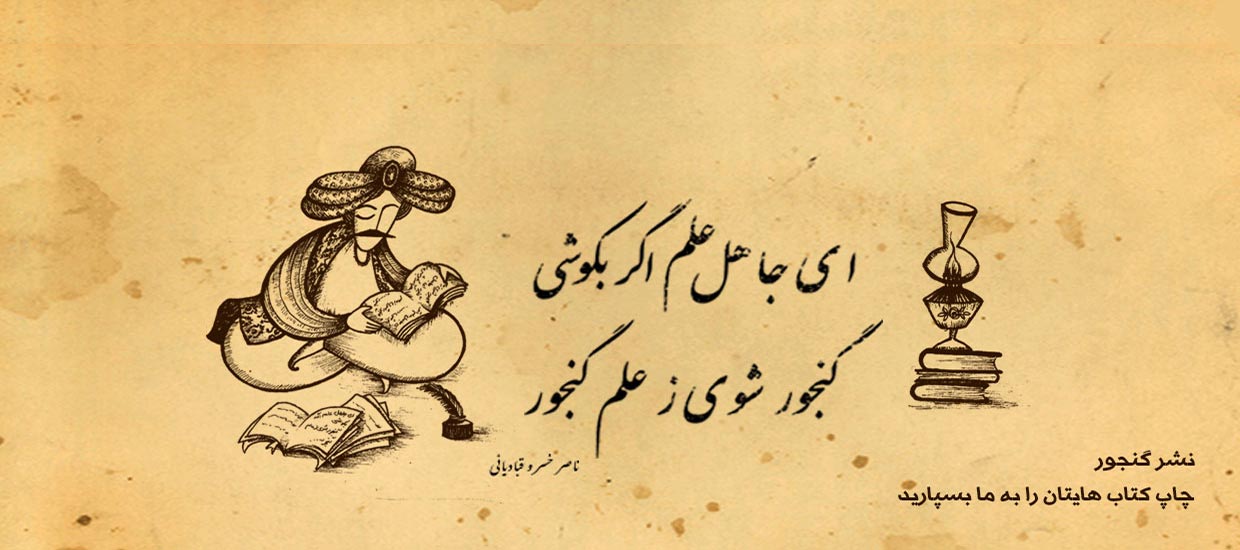 ای جاهل علم اگر بکوشی
گنجور شوی ز علم گنجور
ناصر خسرو قبادیانی
نشر گنجور
چاپ کتاب هایتان را به ما بسپارید